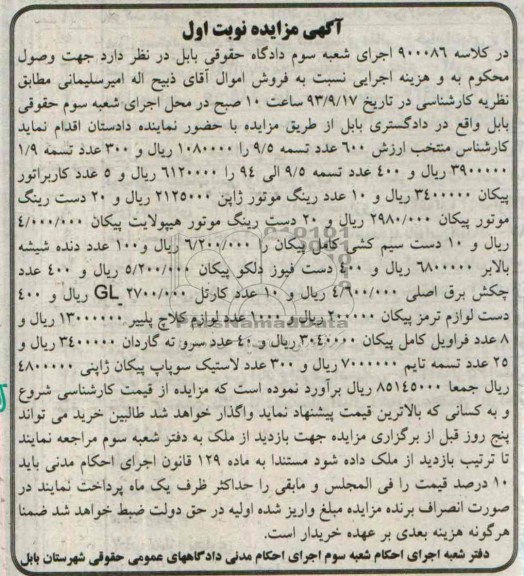 آگهی مزایده نوبت اول
در کلاسه ۹۰۰۰۸۶ اجرای شعبه سوم دادگاه حقوقی بابل در نظر دارد جهت وصول
محکوم به و هزینه اجرایی نسبت به فروش اموال آقای ذبیح اله امیرسلیمانی مطابق
نظریه کارشناسی در تاریخ ۹۳/۹/۱۷ ساعت ۱۰ صبح در محل اجرای شعبه سوم حقوقی
بابل واقع در دادگستری بابل از طریق مزایده با حضور نماینده دادستان اقدام نماید
کارشناس منتخب ارزش ۶۰۰ عدد تسمه ۹/۵ را ۱۰۸۰۰۰۰ ریال و ۳۰۰ عدد تسمه ۱/۹
۳۹۰۰۰۰۰ ریال و ۴۰۰ عدد تسمه ۹/۵ الی ۹۴ را ۶۱۲۰۰۰۰ ریال و ۵ عدد کاربراتور
پیکان ۳۴۰۰۰۰۰ ریال و ۱۰ عدد رینگ موتور ژاپن ۲۱۲۵۰۰۰ ریال و ۲۰ دست رینگ
موتور پیکان ۲۹۸۰/۰۰۰ ریال و ۲۰ دست رینگ موتور هیپولایت پیکان ۴/۰۰۰/۰۰۰
ریال و ۱۰ دست سیم کشی کامل پیکان را ۶/۲۰۰/۰۰۰ ریال و ۱۰۰ عدد دنده شیشه
بالابر ۶۸۰۰۰۰۰ ریال و ۴۰۰ دست فیوز دلکو پیکان ۵/۲۰۰/۰۰۰ ریال و ۴۰۰ عدد
چکش برق اصلی ۴/۶۰۰/۰۰۰ ریال و ۱۰ عدد کارتل GL ۲۷۰۰/۰۰۰ ریال و ۴۰۰
دست لوازم ترمز پیکان ۲۰۰۰۰۰ ریال و ۱۰۰۰ عدد لوازم کلاچ پلیبر ۱۳۰۰۰۰۰۰ ریال و
۸ عدد فراویل کامل پیکان ۳۰۴۰۰۰۰ ریال و ۴۰ عدد سرو ته گاردان ۳۴۰۰۰۰۰ ریال و
۲۵ عدد تسمه تایم ۷۰۰۰۰۰۰ ریال و ۳۰۰ عدد لاستیک سوپاپ پیکان ژاپنی ۴۸۰۰۰۰۰
ریال جمعا ۸۵۱۴۵۰۰۰ ریال برآورد نموده است که مزایده از قیمت کارشناسی شروع
و به کسانی که بالاترین قیمت پیشنهاد نماید واگذار خواهد شد طالبین خرید می تواند
پنج روز قبل از برگزاری مزایده جهت بازدید از ملک به دفتر شعبه سوم مراجعه نمایند
تا ترتیب بازدید از ملک داده شود مستندا به ماده ۱۲۹ قانون اجرای احکام مدنی باید
۱۰ درصد قیمت را فی المجلس و مابقی را حداکثر ظرف یک ماه پرداخت نمایند در
صورت انصراف برنده مزایده مبلغ واریز شده اولیه در حق دولت ضبط خواهد شد ضمنا
هرگونه هزینه بعدی بر عهده خریدار است.
دفتر شعبه اجرای احکام شعبه سوم اجرای احکام مدنی دادگاههای عمومی حقوقی شهرستان بابل